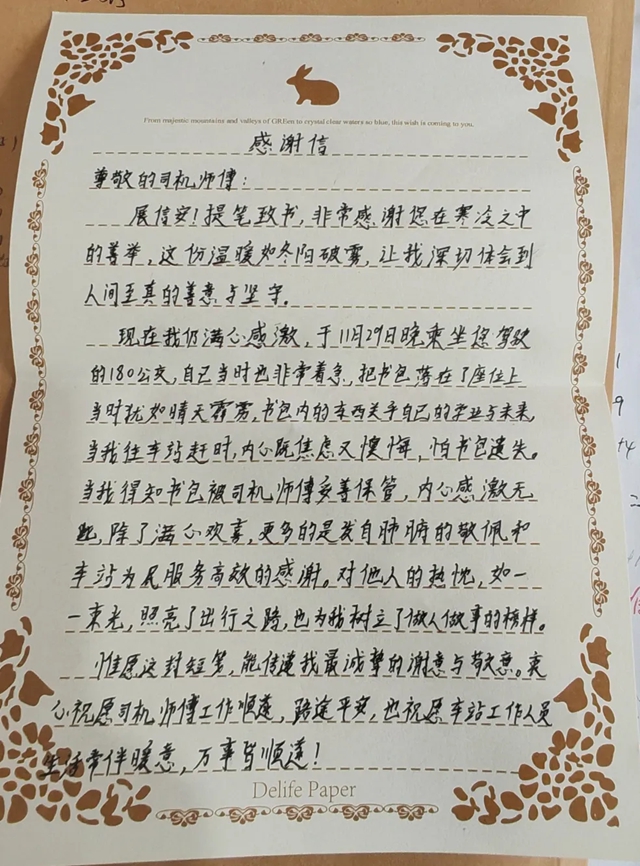 From majestic mountains and valleys of GREen to crystal clear waters so blue, this wish is coming to you.
感谢信
尊敬的司机师傅：
展信安！提笔致书，非常感谢您在寒冷之中
的善举，这份温暖如冬阳破雾，让我深切体会到
人间至真的善意与坚守。
现在我仍满心感激，于11月29日晚乘坐您驾驶
的180公交，自己当时也非常着急，把书包落在了座位上
当时犹如晴天霹雳，书包内的东西关乎自己的学业与未来
当我往车站赶时，内心既焦虑又懊悔，怕书包遗失。
当我得知书包被司机师傅妥善保管，内心感激无
比，除了满心欢喜，更多的是发自肺腑的敬佩和
车站为民服务高效的感谢。对他人的热忱，如一
一束光，照亮了出行之路，也为我树立了做人做事的榜样。
惟愿这封短笺，能传递我最诚挚的谢意与敬意。衷
心祝愿司机师傅工作顺遂，路途平安，也祝愿车站工作人员
生活常伴暖意，万事皆顺遂！
Delife Paper